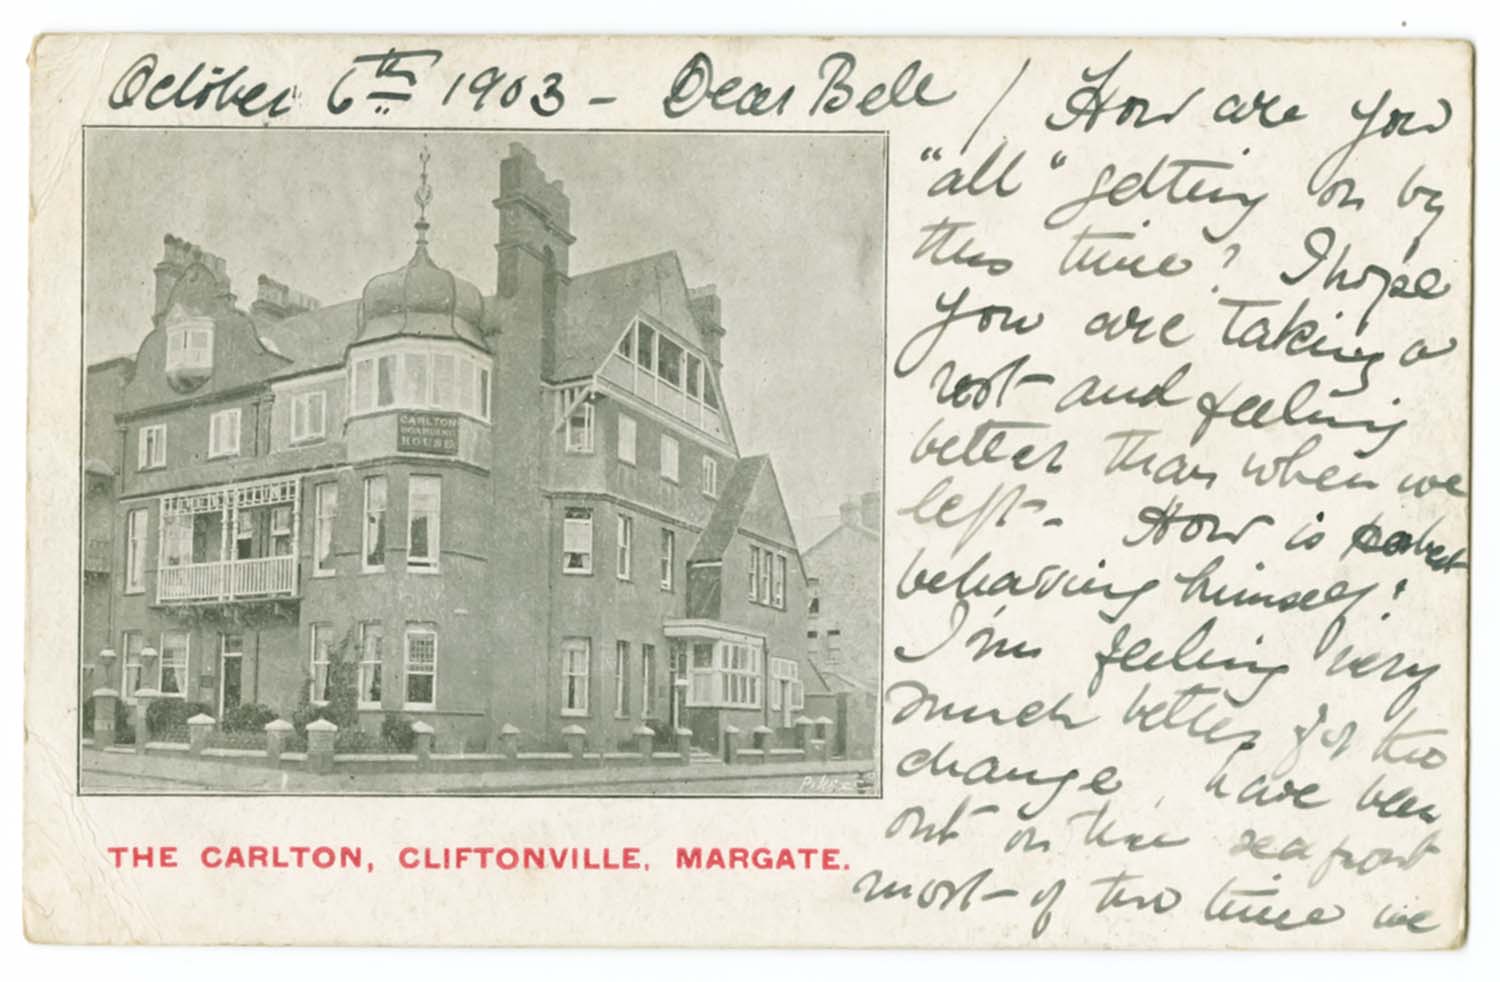 October 6th 1903 - Dear Bell / How are you
"all" getting on by
this time? I hope
you are taking a
rest and feeling
better than when we
left. How is
behaving himself?
I'm feeling very
much better for the
change, have been
out on the sea front
most of the time we
CARLTON
BOARDING
HOUSE
THE CARLTON, CLIFTONVILLE, MARGATE.